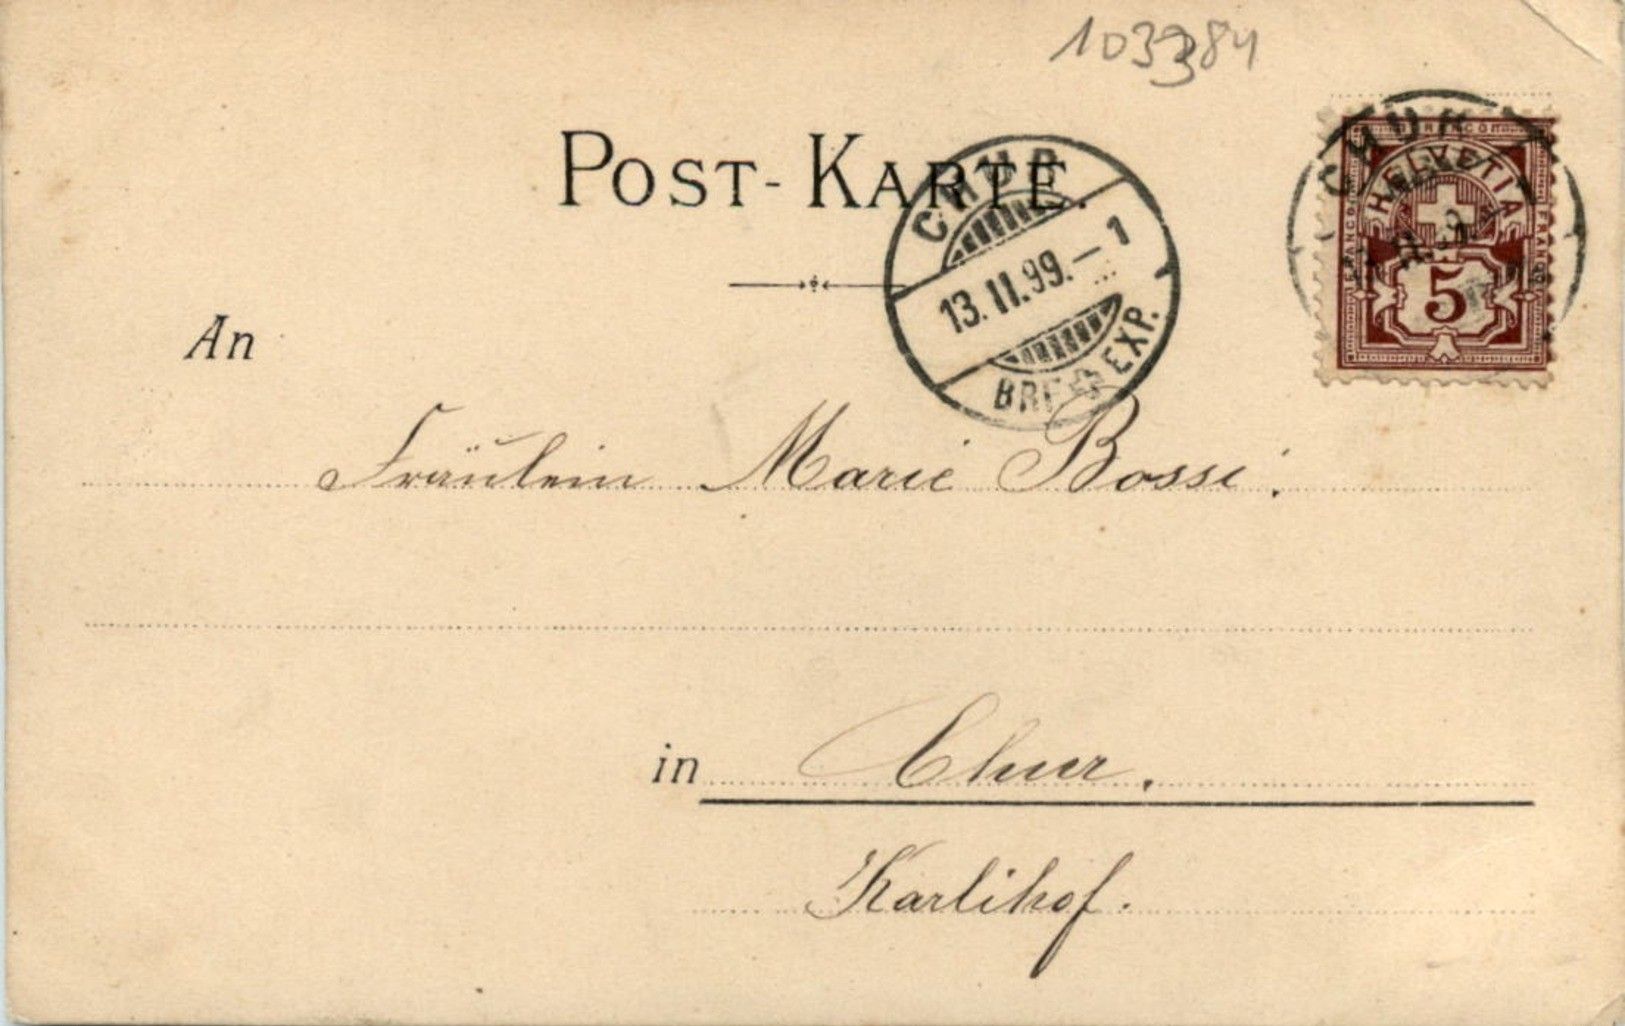 103384
POST-KARTE.
CHUR
13.II.99.–1
BRF EXP.
CHUR
FRANCO
HELVETIA
FRANCO
FRANCO
5
An
Fräulein Marie Bossi.
in Chur.
Karlihof.